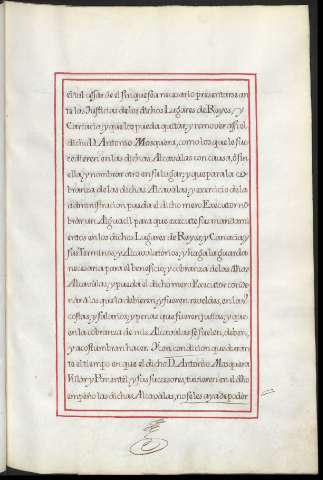 el vil vssar de el sin que sea necesario presentarse an
te las Justicias de los dichos Lugares de Royes, y
Carcacia, y que los pueda quitar, y remover assi el
dicho D. Antonio Mosquera, como los que le suc
cedieren en las dichas Alcavalas con causa, ó sin
ella, y nombrar otro en su lugar, y que para la co
branza de las dichas Alcavalas, y exercicio de la
administracion pueda el dicho mero Executor no
brar un Alguacil para que execute sus mandami
entos en los dichos Lugares de Royes, y Carcacia, y
sus Terminos, y Alcavalatorios; y haga la guarda
necesaria para el beneficio, y cobranza de las dhas
Alcavalas; y pueda el dicho mero Executor conde
nar á los que la debieren, y fueren reveldes, en las
costas, y salarios, y penas que fueren justas, y que
en la cobranza de mis Alcavalas se suelen, deben,
y acostumbran hacer. Y con condicion que duran
te el tiempo en que el dicho D. Antonio Mosquera
Villar y Pimentel, y sus succesores, tuvieren en el dho
empeño las dichas Alcavalas, no se les aya de poder